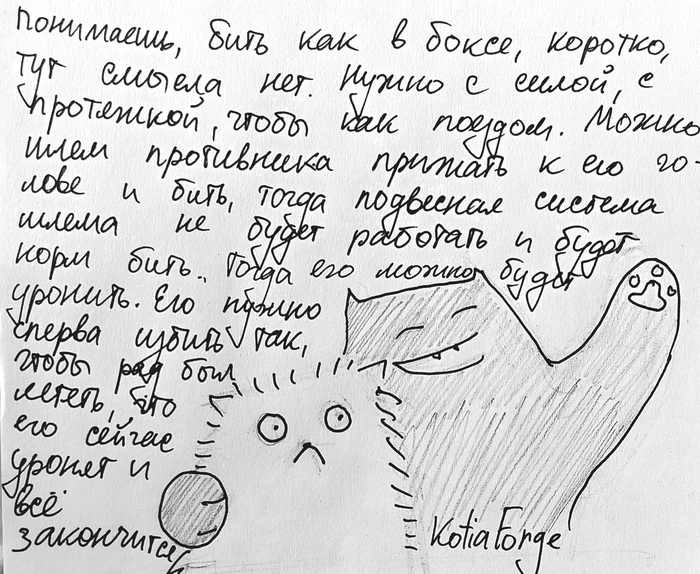 Понимаешь, бить как в боксе, коротко,
тут смысла нет. Нужно с силой, с
протяжкой, чтобы как поездом. Можно
шлем противника прижать к его го-
лове и бить, тогда подвесная система
шлема не будет работать и будет
норм бить.. Тогда его можно будет
уронить. Его нужно
сперва избить так,
чтобы рад был
лететь, что
его сейчас
уронят и
всё
закончится
KotiaForge